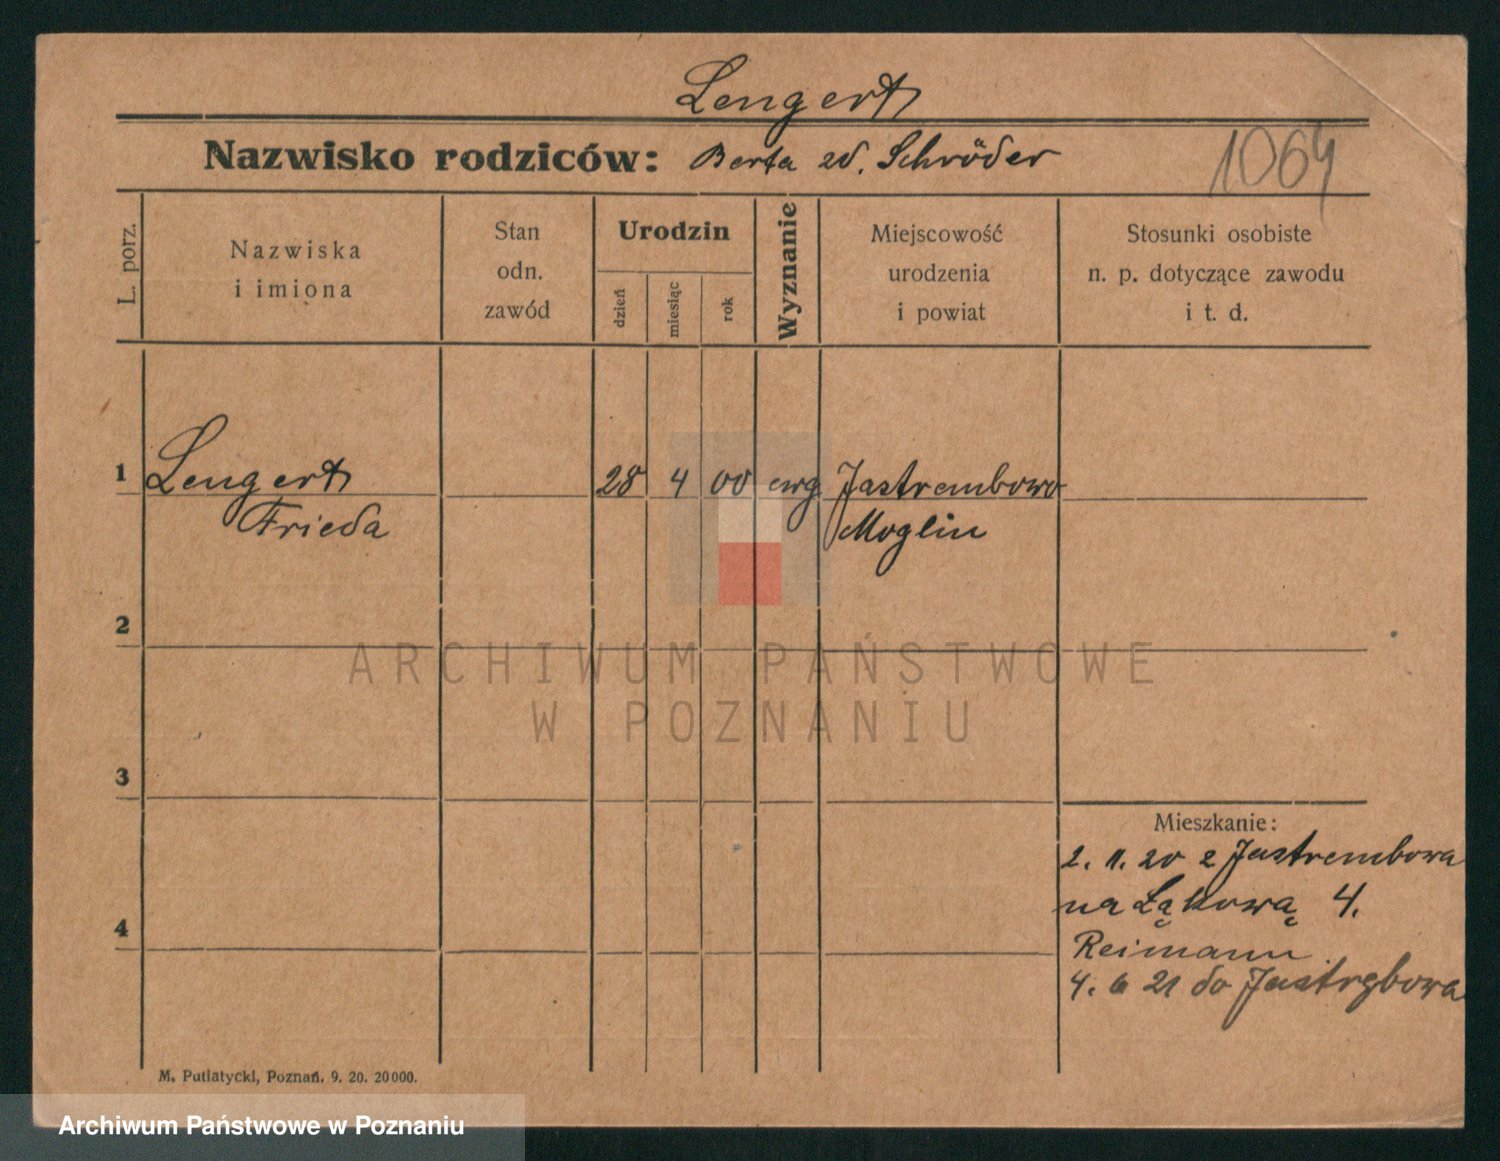 Lengert
Nazwisko rodziców: Berta zd. Schröder
1064
L. porz.
Nazwiska
i imiona
Stan
odn.
zawód
Urodzin
dzień
miesiąc
rok
Wyznanie
Miejscowość
urodzenia
i powiat
Stosunki osobiste
n. p. dotyczące zawodu
i t. d.
1 Lengert 28 4 00 ewg Jastrembowo
Frieda Moglin
2
ARCHIWUM PAŃSTWOWE
W POZNANIU
3
Mieszkanie:
2. 11. 20 z Jastrembowa
na Łąkową 4.
4
Reimann
4. 6 21 do Jastrębowa
M. Putiatycki, Poznań. 9. 20. 20000.
Archiwum Państwowe w Poznaniu